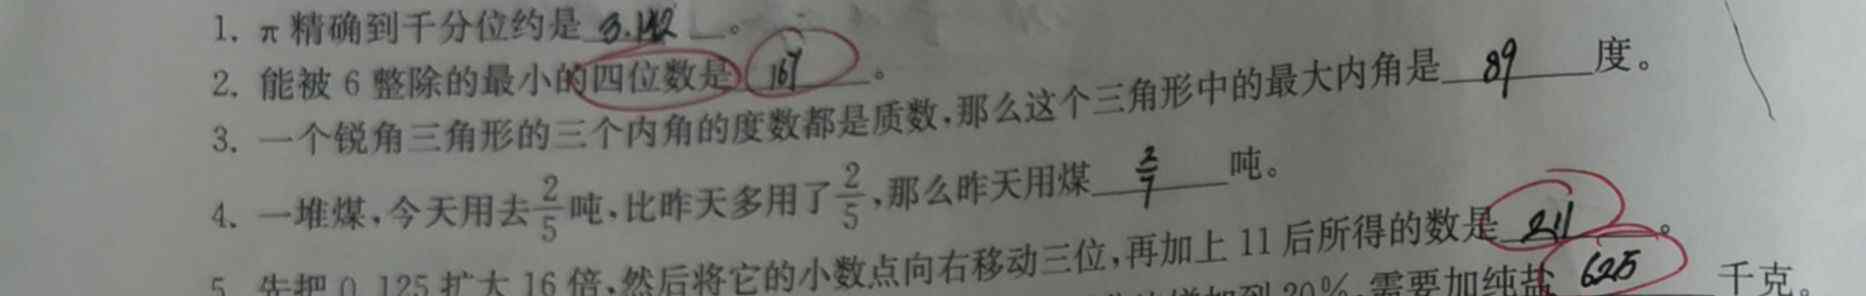 1. π精确到千分位约是 3.142 。
2. 能被 6 整除的最小的四位数是 167 。
3. 一个锐角三角形的三个内角的度数都是质数,那么这个三角形中的最大内角是 89 度。
4. 一堆煤,今天用去2/5吨,比昨天多用了2/5,那么昨天用煤 2/7 吨。
5. 先把 0.125 扩大 16 倍,然后将它的小数点向右移动三位,再加上 11 后所得的数是 211 。
增加到 20%,需要加纯盐 625 千克。